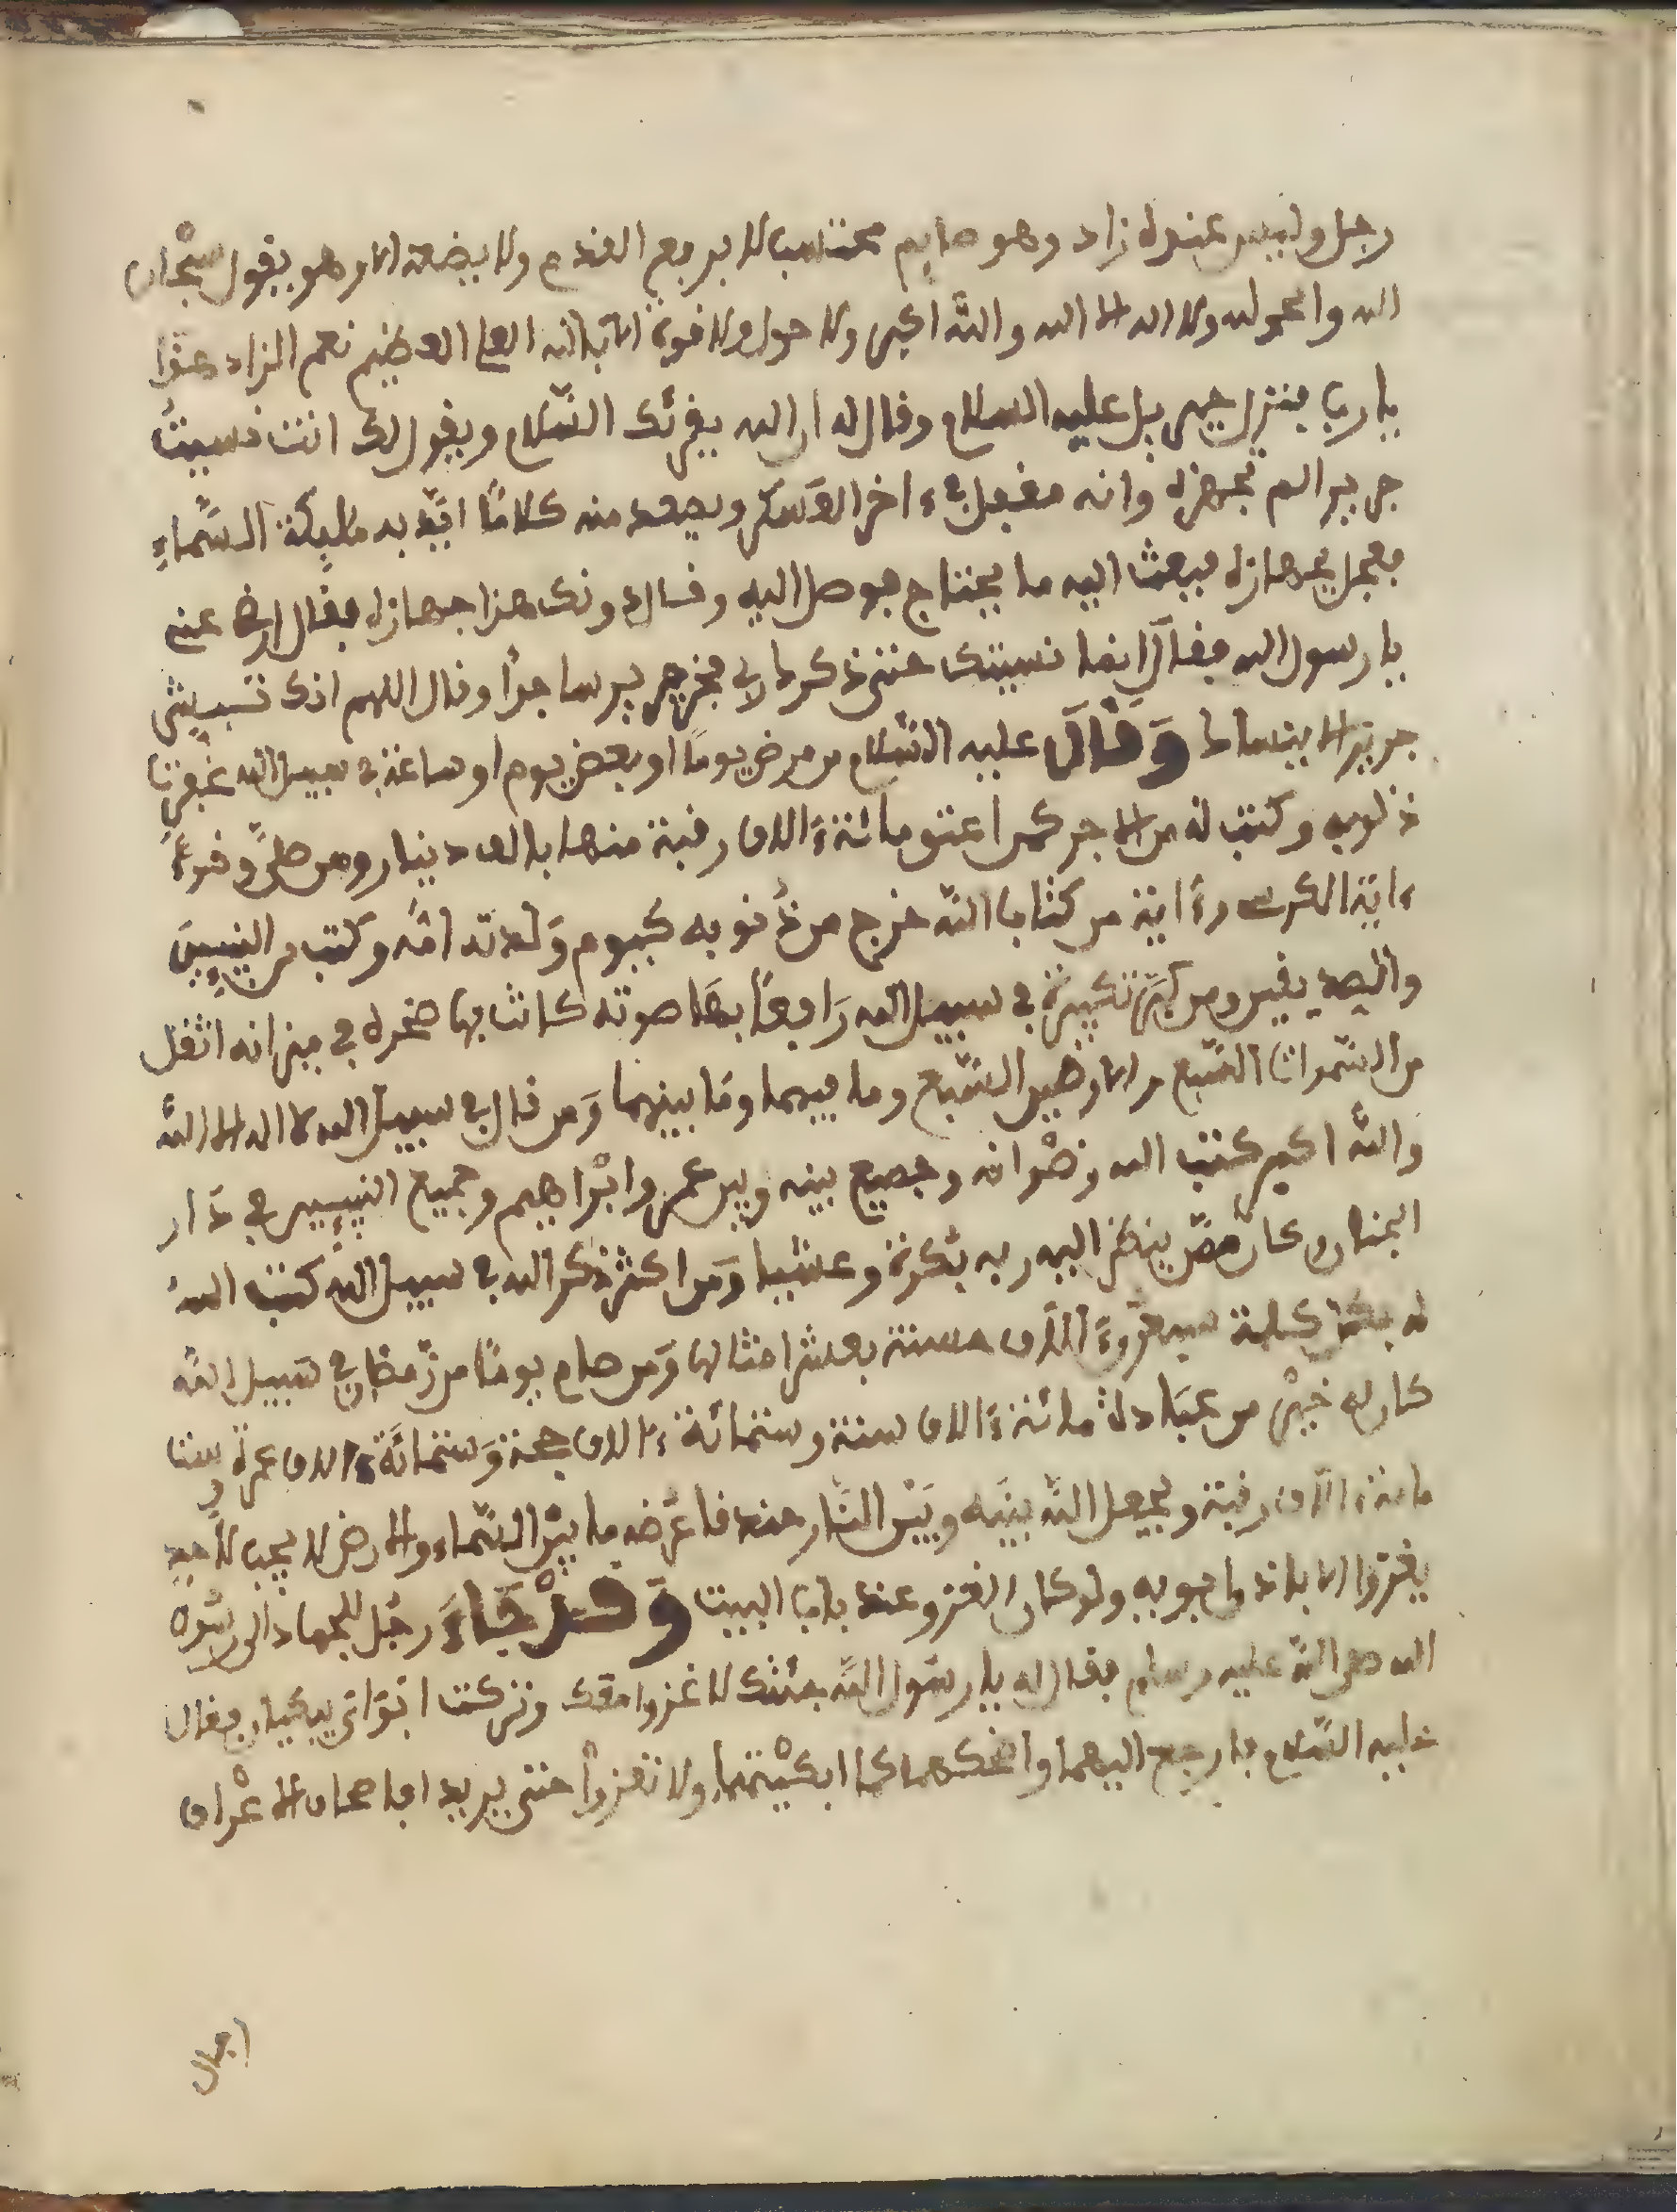 رجل وليس عنده زاد وهو صايم محتسب لا يرفع القدم ولا يضعه الا وهو يقول سبحان
الله والحمد لله ولا اله الا الله والله اكبر ولا حول ولا قوة الا بالله العلي العظيم نعم الزاد هذا
يا رب فنزل جبريل عليه السلام وقال له ان الله يقرئك السّلام ويقول لك انت نسيت
جريرا لم تجهزه وانه مقبل في ءاخر العسكر ويصعد منه كلامًا ... به ملايكة السَّماءِ
فعجل بجهازه فبعث اليه ما يحتاج فوصل اليه وقال دونك هذا جهازه فقال ارض عني
يا رسول الله فقال انما نسيتك حتى ذكرك ربي فخر جرير ساجدًا وقال اللهم انك تنسيتني
جريرا ... وَقَالَ عليه السّلام من مرض يومًا او بعض يوم او ساعة في سبيل الله غفرت
ذنوبه وكتب له من الاجر كمن اعتق مائة ءَالاف رقبة منها بالف دينار ومن صلَّى وقرءَ
ءاية الكرسي وءَاية من كتاب الله خرج من ذُنوبه كيوم وَلدته امّه وكتب من النبيِينَ
والصديقين ومن كبّر تكبيرة في سبيل الله رَافعًا بهَا صوته كانت بها صخرة في ميزانه اثقل
من السّموات السّبع والارضين السّبع وما فيهما ومَا بينهما وَمن قال في سبيل الله لا اله الا الله
والله اكبر كتب الله رضْوانه وجميع بينه وبين محمد وابْراهيم وجميع النبيِين في دَار
الجنان وكان ممّن ينظر اليه ربه بُكرة وعشيا وَمن اكثر ذكر الله في سبيل الله كتب اللهُ
له بكل كلمة سبعون ءَالاف حسنة بعشر امثالها وَمن صام يومًا من رَمضان في سَبيل الله
كان له خيْر من عبَادة مائة ءَالاف سنة وستمائة ءالاف حجة وَستمائَة ءالاف عمرة وستما
مائة ءالاف رقبة ويجعل الله بينَه وبَيْن النَّار خندقا عرْضه ما بيْن السّماء والارض لا يجب لاَحدٍ
يغزوا الا باذن ابويه ولو كان الغزو عند باب البيت وَقَدْ جَاءَ رجُل للجهاد الى رسُول
الله صلى الله عليه وسلم فقال له يا رسُول الله جئتك لاغزوا معَك وتركت ابَوَاىَ يبكيان فقال
عليه السّلام فارجع اليهما واضحكهما كما ابكيْتهما ولا تغزواْ حتى يريد ... اصحاب الاعْراف
اجال